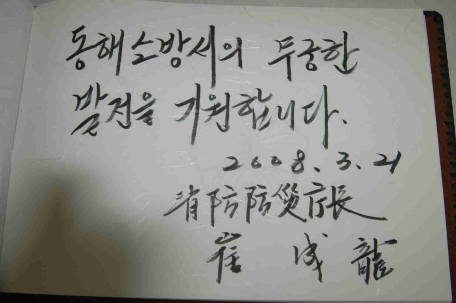 동해소방서의 무궁한
발전을 기원합니다.
2008. 3. 21
消防防災庁長
崔 成 龍